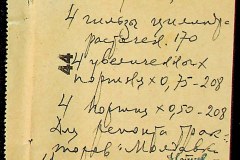 4 гильзы цилинд-
расточен. 170
44
4 увеличенных
поршня х 0,75-208
4 поршня х 0,50-208
Для ремонта трак-
торов "Молдавк